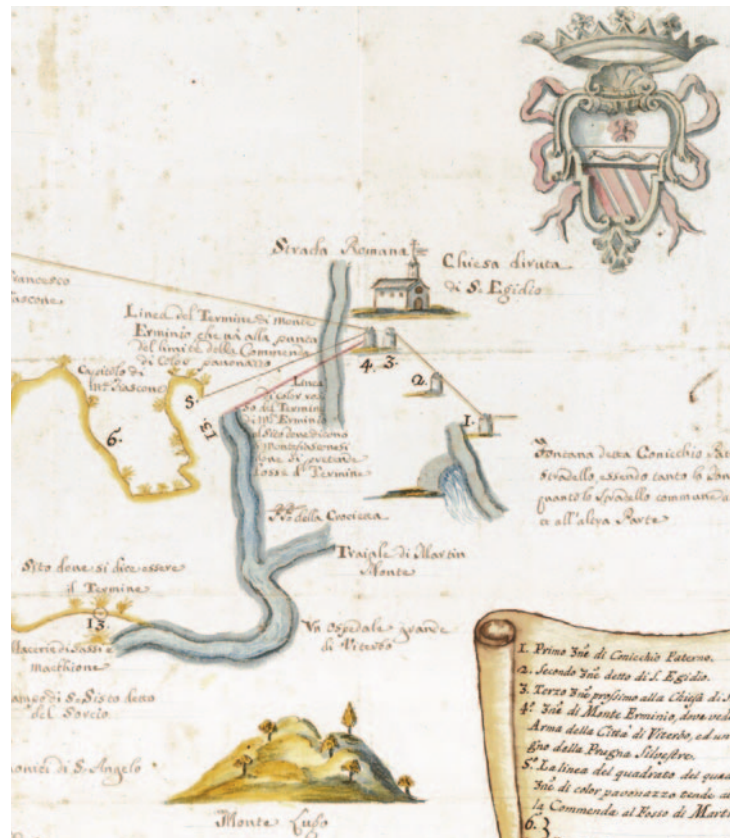 Strada Romana
Chiesa diruta
di S. Egidio
Linea del Termine di Monte
Erminio che và alla punta
del limite della Commenda
di Color pavonazzo
Capitolo di
4. 3.
2.
1.
5.
6.
15.
Linea
di color ros
so dal Termine
di Mte Erminio
al Sito dove dicono
Montefiasconesi
fosse il Termine
Fontana detta Conicchio
Stradello, essendo tanto la
quanto lo Stradello commune
all'altra Parte
della Crocietta
Traiale di Martin
Monte
Sito dove si dice essere
il Termine
13.
Macerie di Sassi e
macchione
Va Ospedale grande
di Viterbo
di S. Sisto detto
del Sorcio
di S. Angelo
Monte Lugo
1. Primo Tne di Conicchio Paterno.
2. Secondo Tne detto di S. Egidio.
3. Terzo Tne prossimo alla Chiesa di S
4. Tne di Monte Erminio, dove
Arma della Città di Viterbo, ed un
gno della Prugna Silvestre.
5. La linea del quadrato del
Tne di color pavonazzo tende
la Commenda al Fosso di Mart
6.